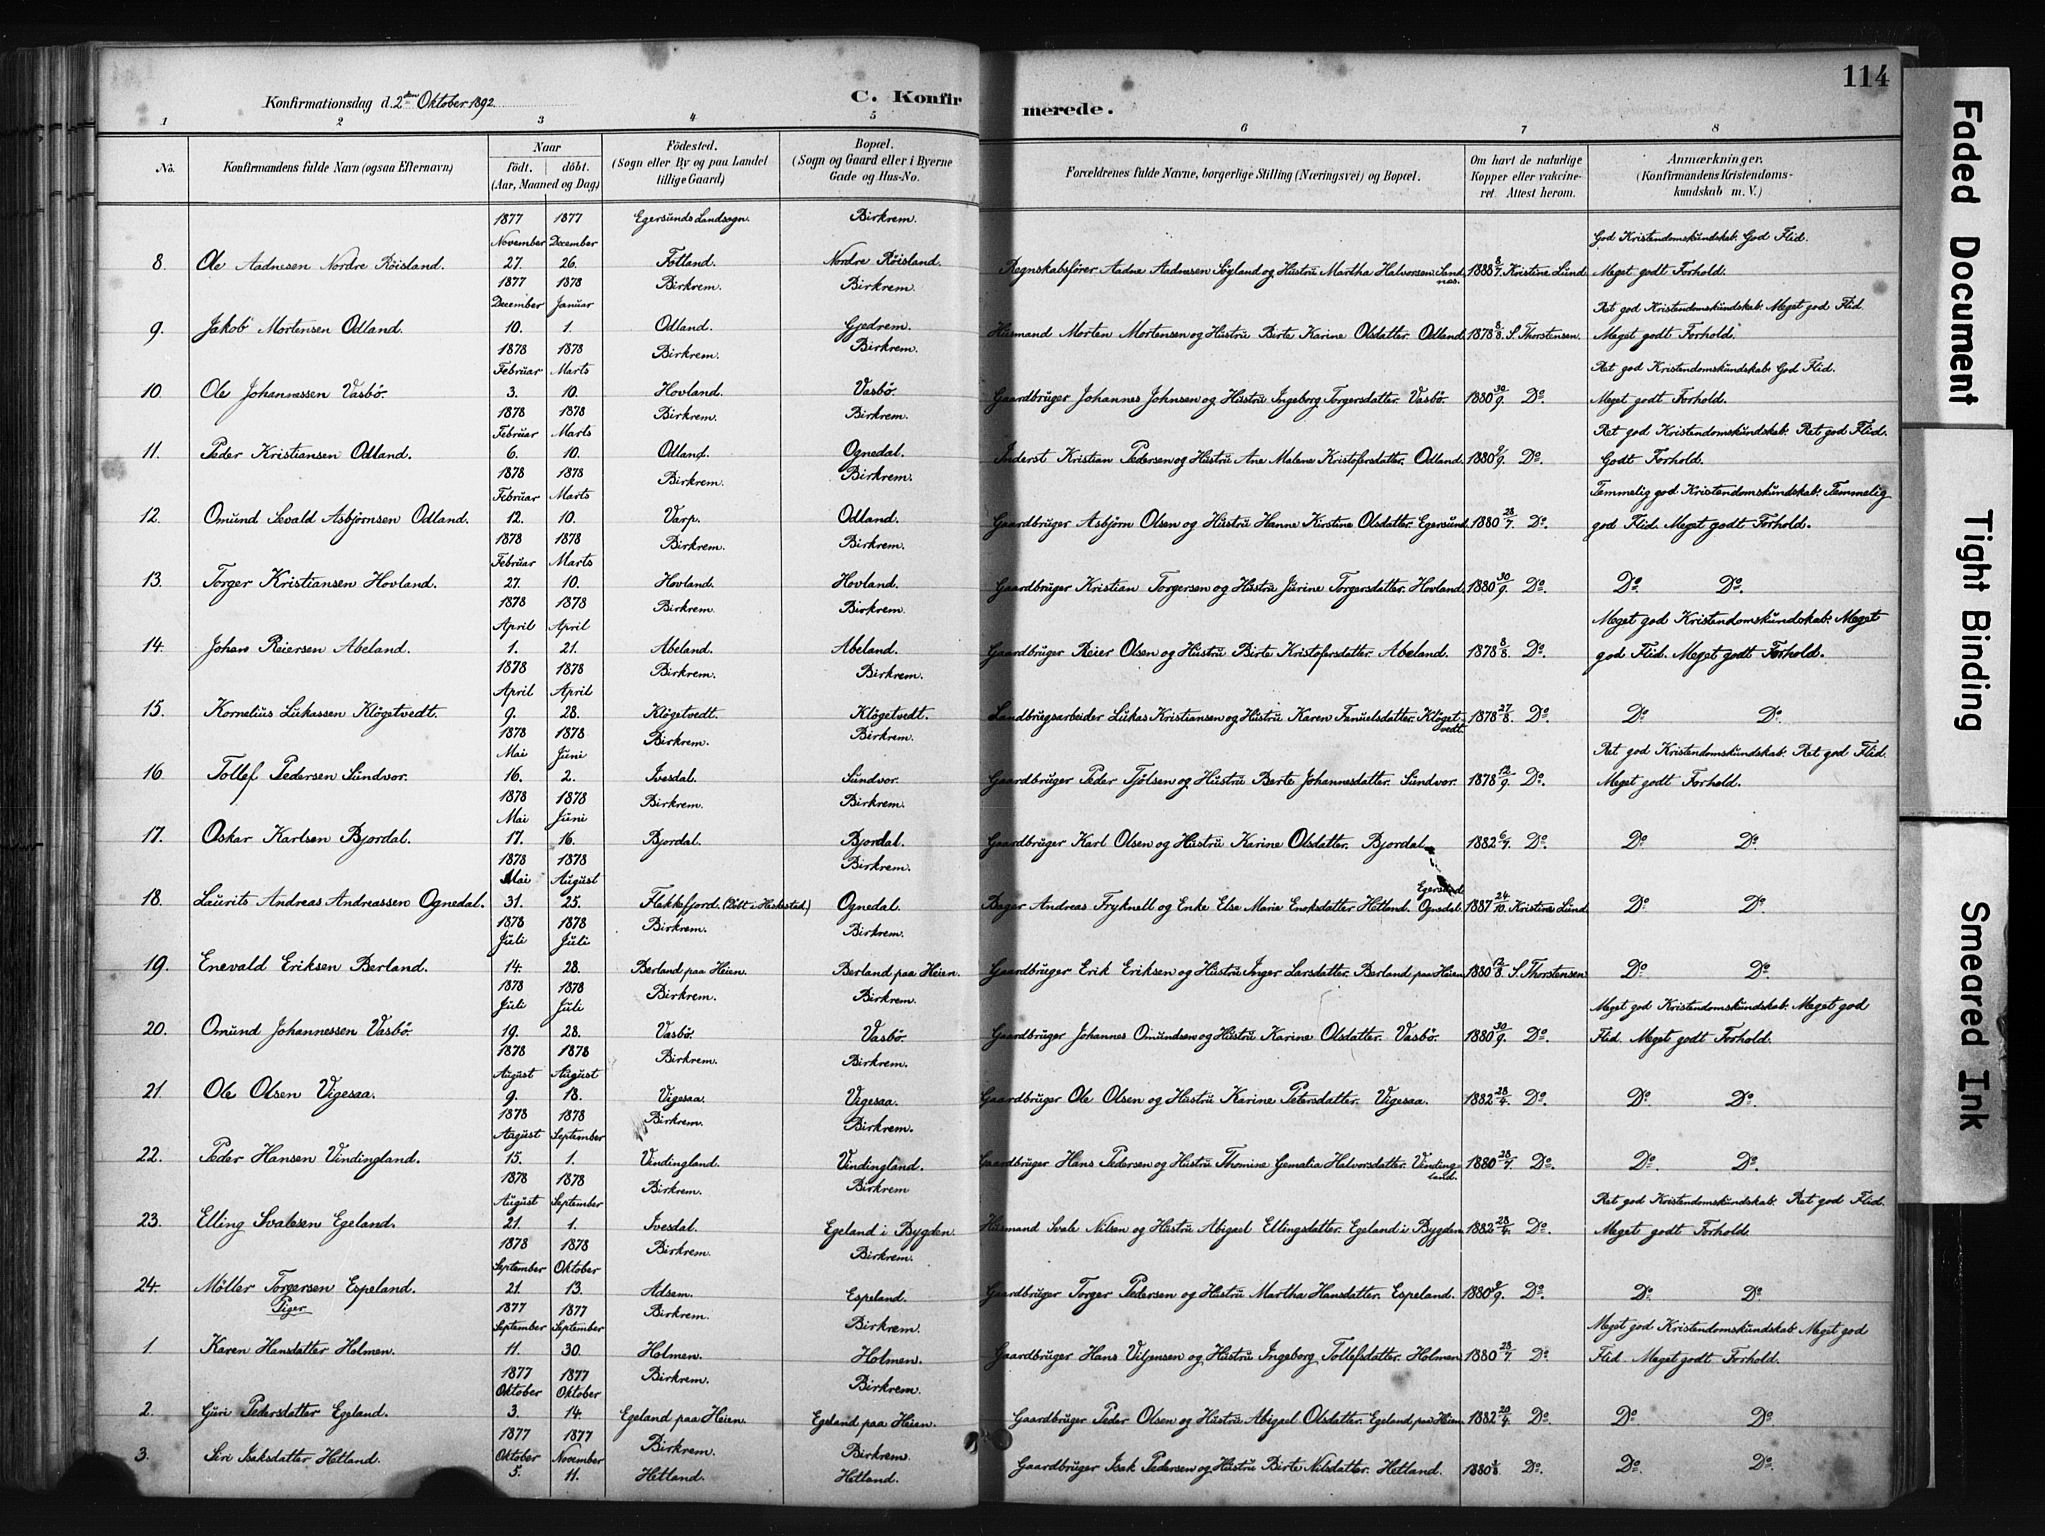 114
Konfirmationsdag d. 2den Oktober 1892.
C. Konfirmerede.
1 2 3 4 5 6 7 8
No. Konfirmandens fulde Navn (ogsaa Efternavn) Naar födt. döbt. (Aar, Maaned og Dag) Födested. (Sogn eller By og paa Landet tillige Gaard) Bopæl. (Sogn og Gaard eller i Byerne Gade og Hus-No. Forældrenes fulde Navne, borgerlige Stilling (Næringsvei) og Bopæl. Om havt de naturlige Kopper eller vakcineret. Attest herom. Anmærkninger. (Konfirmandens Kristendomskundskab m. V.)
1877 1877 Egersunds Landsogn. Birkrem.
November December God Kristendomskundskab. God Flid.
8. Ole Aadnesen Nordre Röisland. 27. 26. Fotland. Nordre Röisland. Regnskabsförer Aadne Aadnesen Söyland og Hustru Martha Halvorsen. Sandnes. 1888 8/7. Kristine Lund. Meget godt Forhold.
1877 1878 Birkrem. Birkrem.
December Januar Ret god Kristendomskundskab. Meget god Flid.
9. Jakob Mortensen Odland. 10. 1. Odland. Gjedrem. Husmand Morten Mortensen og Hustru Birte Karine Olsdatter. Odland. 1878 8/8. S. Thorstensen. Meget godt Forhold.
1878 1878 Birkrem. Birkrem.
Februar Marts Ret god Kristendomskundskab. God Flid.
10. Ole Johannessen Vasbö. 3. 10. Hovland. Vasbö. Gaardbruger Johannes Johnsen og Hustru Ingeborg Torgersdatter. Vasbö. 1880 30/9. Do. Meget godt Forhold.
1878 1878 Birkrem. Birkrem.
Februar Marts Ret god Kristendomskundskab. Ret god Flid.
11. Peder Kristiansen Odland. 6. 10. Odland. Ognedal. Inderst Kristian Pedersen og Hustru Ane Malene Kristofersdatter. Odland. 1880 9/9. Do. Godt Forhold.
1878 1878 Birkrem. Birkrem.
Februar Marts Temmelig god Kristendomskundskab. Temmelig
12. Omund Sevald Asbjörnsen Odland. 12. 10. Varp. Odland. Gaardbruger Asbjörn Olsen og Hustru Hanne Kirstine Olsdatter. Egersund. 1880 28/7. Do. god Flid. Meget godt Forhold.
1878 1878 Birkrem. Birkrem.
Februar Marts
13. Torger Kristiansen Hovland. 27. 10. Hovland. Hovland. Gaardbruger Kristian Torgersen og Hustru Jürine Torgersdatter. Hovland. 1880 30/9. Do. Do. Do.
1878 1878 Birkrem. Birkrem.
April April Meget god Kristendomskundskab. Meget
14. Johan Reiersen Abeland. 1. 21. Abeland. Abeland. Gaardbruger Reier Olsen og Hustru Birte Kristofersdatter. Abeland. 1878 8/8. Do. god Flid. Meget godt Forhold.
1878 1878 Birkrem. Birkrem.
April April
15. Kornelius Lukassen Klögetvedt. 9. 28. Klögetvedt. Klögetvedt. Landbrugsarbeider Lukas Kristiansen og Hustru Karen Fanuelsdatter. Klögetvedt. 1878 27/8. Do. Do. Do.
1878 1878 Birkrem. Birkrem.
Mai Juni Ret god Kristendomskundskab. Ret god Flid.
16 Tollef Pedersen Sundvor. 16. 2. Ivesdal. Sundvor. Gaardbruger Peder Tjölsen og Hustru Berte Johannesdatter. Sundvor. 1878 12/9. Do. Meget godt Forhold.
1878 1878 Birkrem. Birkrem.
Mai Juni
17. Oskar Karlsen Bjordal. 17. 16. Bjordal. Bjordal. Gaardbruger Karl Olsen og Hustru Karine Olsdatter. Bjordal. 1882 6/7. Do. Do. Do.
1878 1878 Birkrem.
Mai August
18. Laurits Andreas Andreassen Ognedal. 31. 25. Flekkefjord. (Döbt i Heskestad) Ognedal. Bager Andreas Fryknell og Enke Else Marie Enoksdatter Hetland. Egersund Ognedal. 1887 24/10. Kristine Lund. Do. Do.
1878 1878 Birkrem. Birkrem.
Juli Juli
19. Enevald Eriksen Berland. 14. 28. Berland paa Heien. Berland paa Heien. Gaardbruger Erik Eriksen og Hustru Inger Larsdatter. Berland paa Heien. 1880 12/8. S. Thorstensen. Do. Do.
1878 1878 Birkrem. Birkrem.
Juli Juli Meget god Kristendomskundskab. Meget god
20. Omund Johannessen Vasbö. 19. 28. Vasbö. Vasbö. Gaardbruger Johannes Omundsen og Hustru Karine Olsdatter. Vasbö. 1880 30/9. Do. Flid. Meget godt Forhold.
1878 1878 Birkrem. Birkrem.
August August
21. Ole Olsen Vigesaa. 9. 18. Vigesaa. Vigesaa. Gaardbruger Ole Olsen og Hustru Karine Petersdatter. Vigesaa. 1882 28/4. Do. Do. Do.
1878 1878 Birkrem. Birkrem.
August September
22. Peder Hansen Vindingland. 15. 1. Vindingland. Vindingland. Gaardbruger Hans Pedersen og Hustru Thomine Gemalia Halvorsdatter. Vindingland. 1880 28/7. Do. Do. Do.
1878 1878 Birkrem. Birkrem
August September Ret god Kristendomskundskab. Ret god Flid.
23. Elling Svalesen Egeland. 21. 1. Ivesdal. Egeland i Bygden. Husmand Svale Nilsen og Hustru Abigael Ellingsdatter. Egeland i Bygden. 1882 28/4. Do. Meget godt Forhold.
1878 1878 Birkrem. Birkrem.
September Oktober
24. Möller Torgersen Espeland. 21. 13. Adsem. Espeland. Gaardbruger Torger Pedersen og Hustru Martha Hansdatter. Espeland. 1880 9/9. Do. Do. Do.
Piger
1877 1877 Birkrem. Birkrem.
September September Meget god Kristendomskundskab. Meget god
1. Karen Hansdatter Holmen. 11. 30. Holmen. Holmen. Gaardbruger Hans Viljensen og Hustru Ingeborg Tollefsdatter. Holmen. 1880 28/7. Do. Flid. Meget godt Forhold.
1877 1877 Birkrem. Birkrem.
Oktober Oktober
2. Guri Pedersdatter Egeland. 3. 14. Egeland paa Heien. Egeland paa Heien. Gaardbruger Peder Olsen og Hustru Abigael Olsdatter. Egeland paa Heien. 1882 20/4. Do. Do. Do.
1877 1877 Birkrem. Birkrem.
Oktober November
3. Siri Isaksdatter Hetland. 5. 11. Hetland. Hetland. Gaardbruger Isak Pedersen og Hustru Birte Nilsdatter. Hetland. 1880 Do. Do. Do.
Faded Document
Tight Binding
Smeared Ink